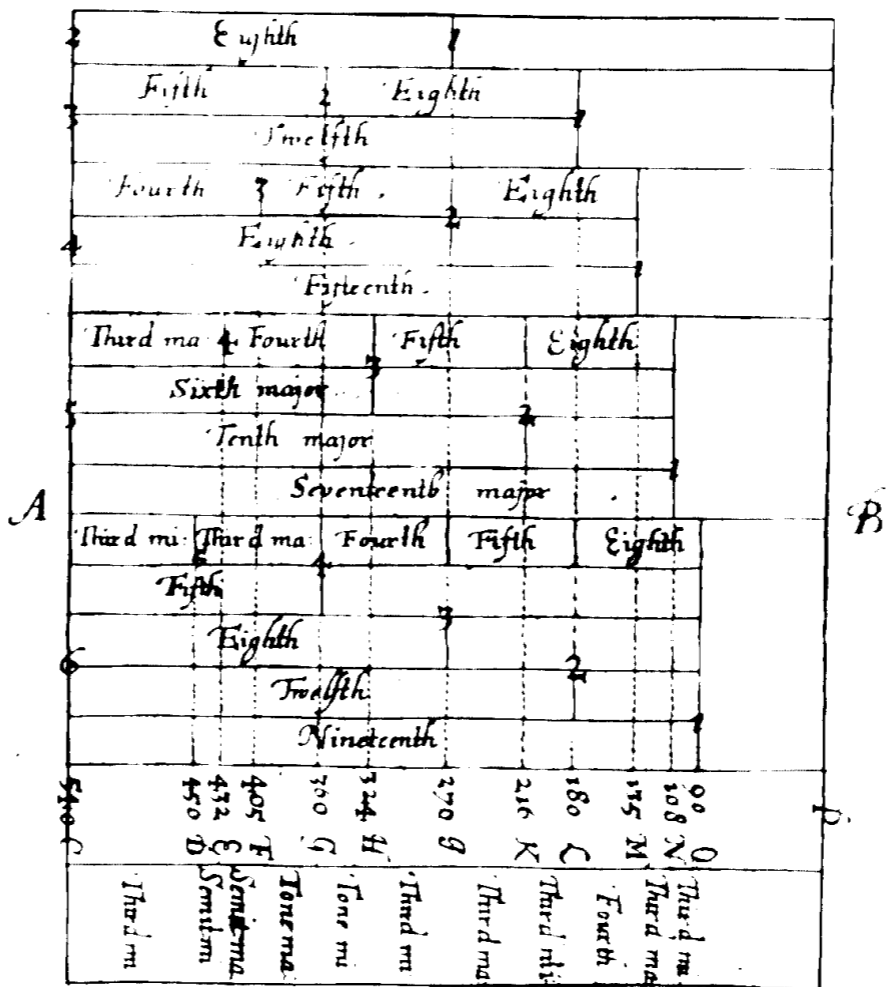 2 Eighth 1
Fifth 2 Eighth
3 1
Twelfth
Fourth 3 Fifth Eighth
2
4 Eighth
1
Fifteenth
Third ma 4 Fourth Fifth Eighth
3
Sixth major
5 2
Tenth major
1
Seventeenth major
A B
Third mi Third ma Fourth Fifth Eighth
5 4
Fifth
3
Eighth
6 2
Twelfth
1
Nineteenth
540 450 432 405 360 324 270 216 180 135 108 90
C D E F G H K M N P
Third mi Semit mi Semit ma Tone ma Tone mi Third mi Third ma Third mi Fourth Third ma Third mi